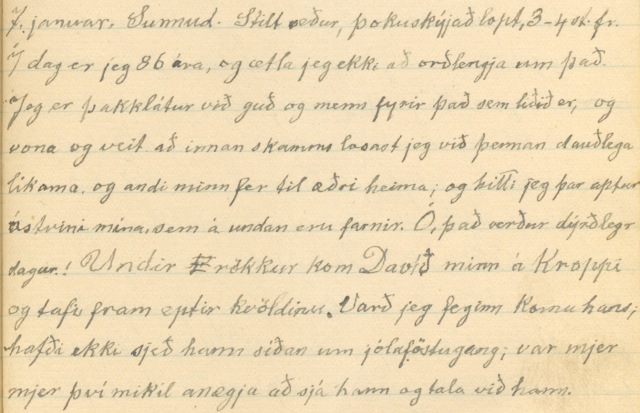 7. janúar. Sunnud. Stilt veður, þokuskýjað lopt, 3-4 st. fr.
Í dag er jeg 86 ára, og ætla jeg ekki að orðlengja um það.
Jeg er þakklátur við guð og menn fyrir það sem liðið er, og
vona og veit að innan skamms losast jeg við þennan dauðlega
líkama, og andi minn fer til æðri heima; og hitti jeg þar aptur
ástvini mína, sem á undan eru farnir. Ó, það verður dýrðlegr
dagur! Undir rökkur kom Davíð minn á Kroppi
og tafi fram eptir kvöldinu. Varð jeg feginn komu hans;
hafði ekki sjeð hann síðan um jólaföstugang; var mjer
mjer því mikil anægja að sjá hann og tala við hann.